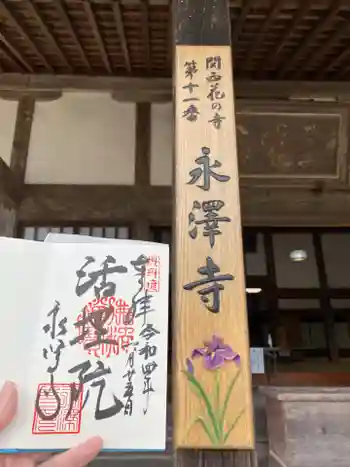 関西花の寺
第十一番
永澤寺
奉拝
令和四年
六月廿五日
活埋院
永澤寺